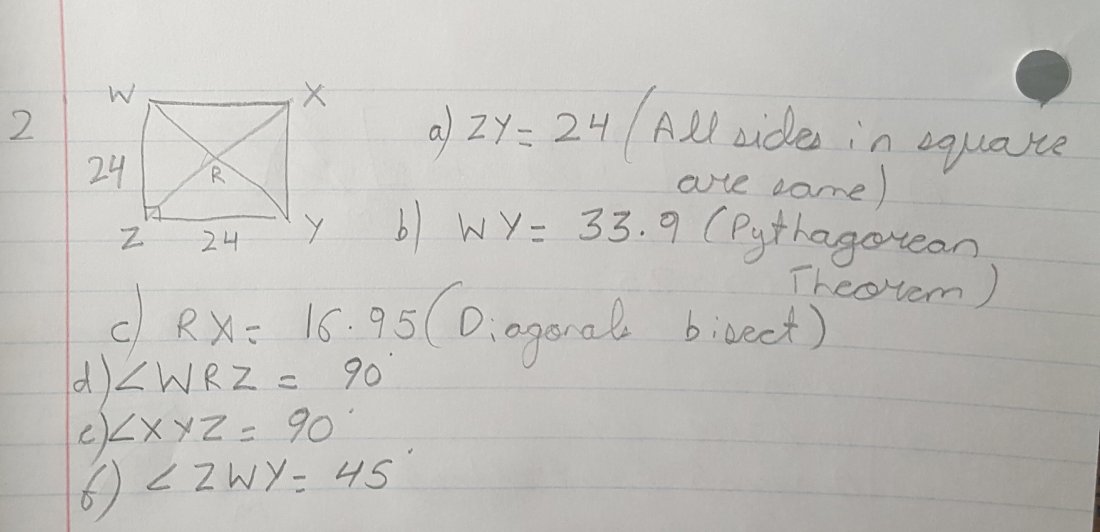 2
W X
24
R
Z 24 Y
a) ZY = 24 (All sides in square
are same)
b) WY = 33.9 (Pythagorean
Theorem)
c) RX = 16.95 (Diagonals bisect)
d) ∠WRZ = 90°
e) ∠XYZ = 90°
f) ∠ZWY = 45°